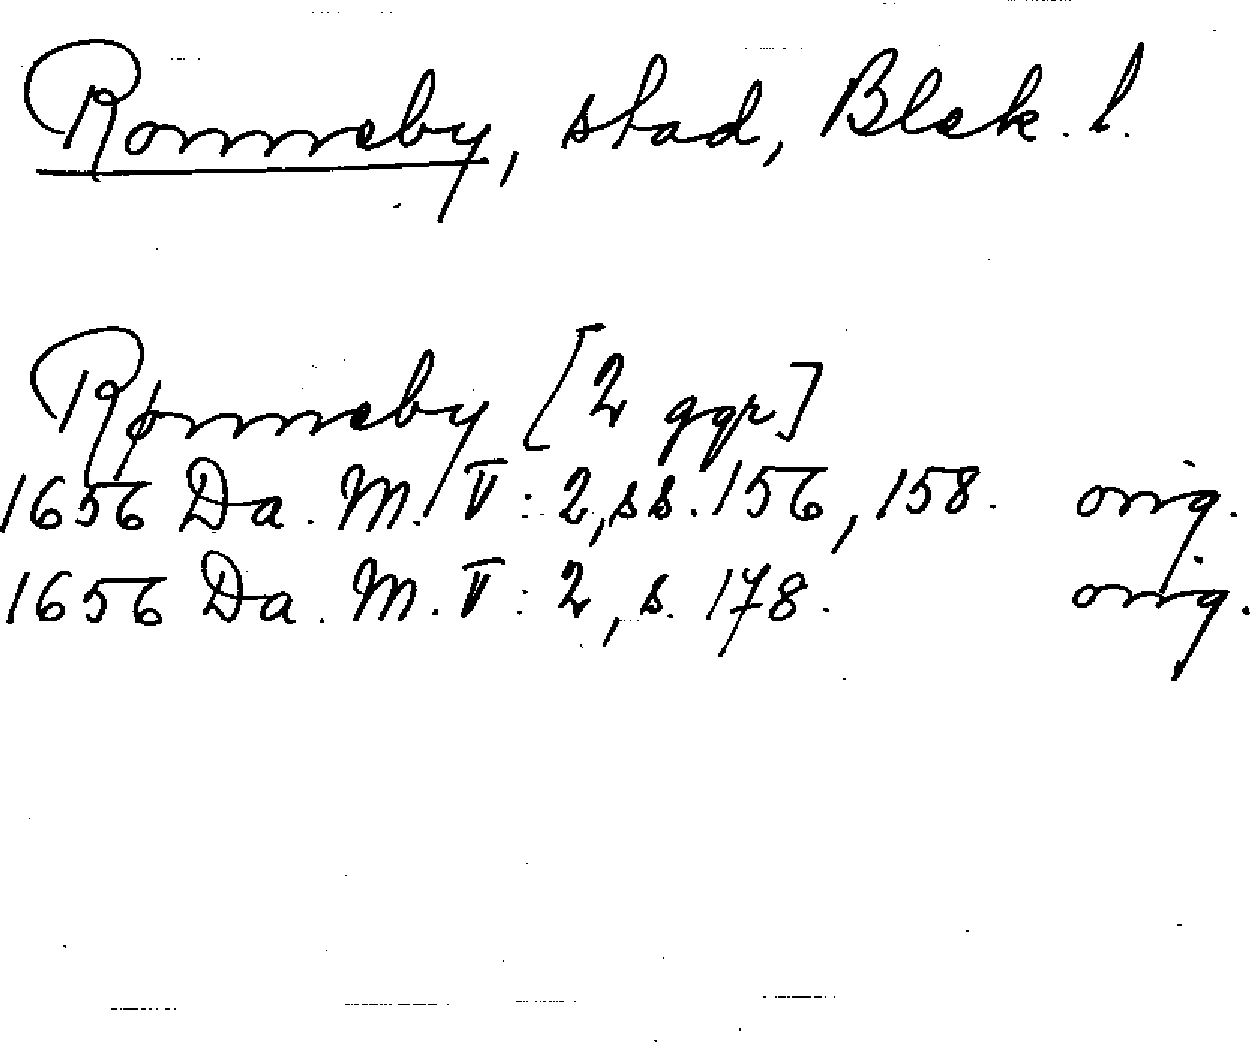 Ronneby, stad, Blek. l.
Rønneby [2 ggr]
1656 Da. M. V: 2, ss. 156, 158. orig.
1656 Da. M. V: 2, s. 178. orig.